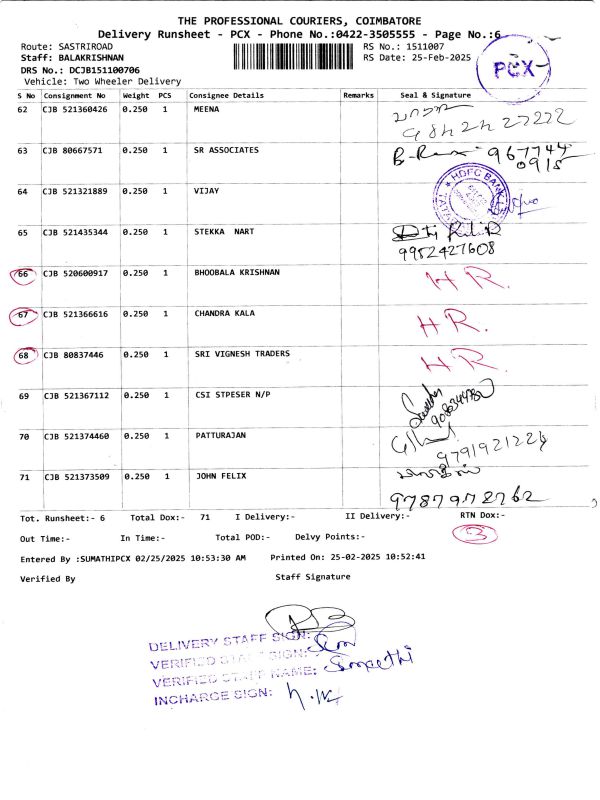 THE PROFESSIONAL COURIERS, COIMBATORE
Delivery Runsheet - PCX - Phone No.:0422-3505555 - Page No.:6
Route: SASTRIROAD
RS No.: 1511007
Staff: BALAKRISHNAN
RS Date: 25-Feb-2025
DRS No.: DCJB151100706
Vehicle: Two Wheeler Delivery
PCX
S No Consignment No Weight PCS Consignee Details Remarks Seal & Signature
62 CJB 521360426 0.250 1 MEENA
63 CJB 80667571 0.250 1 SR ASSOCIATES
967744
0915
64 CJB 521321889 0.250 1 VIJAY
HDFC BANK
65 CJB 521435344 0.250 1 STEKKA NART
9952427608
66 CJB 520600917 0.250 1 BHOOBALA KRISHNAN HR
67 CJB 521366616 0.250 1 CHANDRA KALA HR.
68 CJB 80837446 0.250 1 SRI VIGNESH TRADERS HR.
69 CJB 521367112 0.250 1 CSI STPESER N/P
70 CJB 521374460 0.250 1 PATTURAJAN
9791921224
71 CJB 521373509 0.250 1 JOHN FELIX
9787972762
Tot. Runsheet:- 6 Total Dox:- 71 I Delivery:- II Delivery:- RTN Dox:-
3
Out Time:- In Time:- Total POD:- Delvy Points:-
Entered By :SUMATHIPCX 02/25/2025 10:53:30 AM Printed On: 25-02-2025 10:52:41
Verified By Staff Signature
DELIVERY STAFF SIGN:
VERIFIED STAFF SIGN:
VERIFIED STAFF NAME: Sumathi
INCHARGE SIGN: